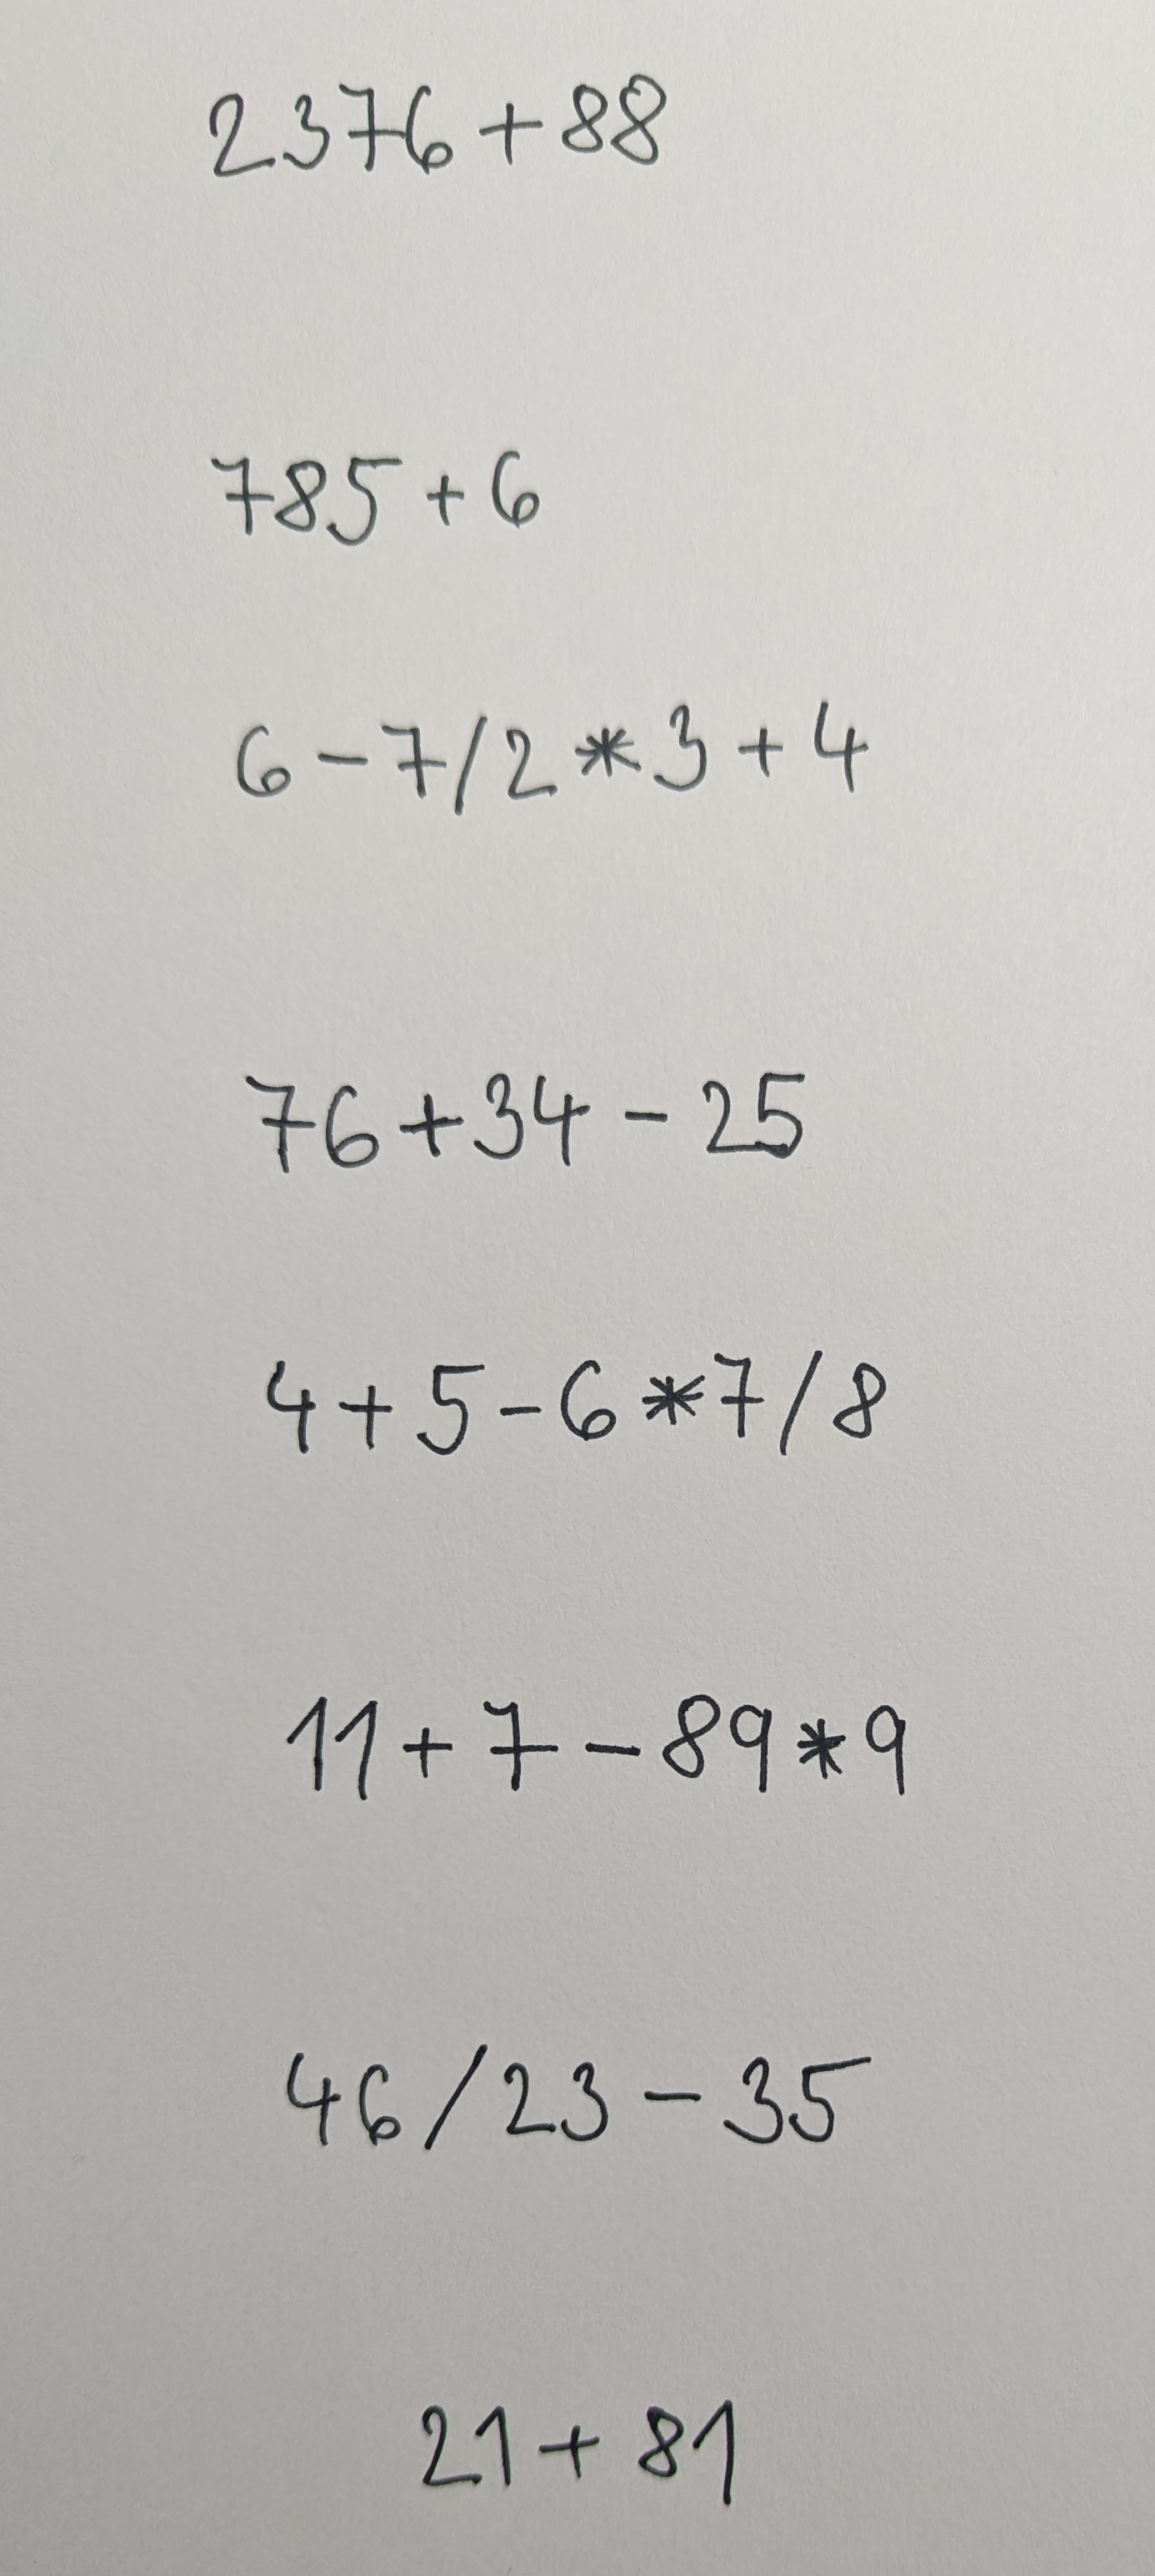 2376+88
785+6
6-7/2*3+4
76+34-25
4+5-6*7/8
11+7-89*9
46/23-35
21+81